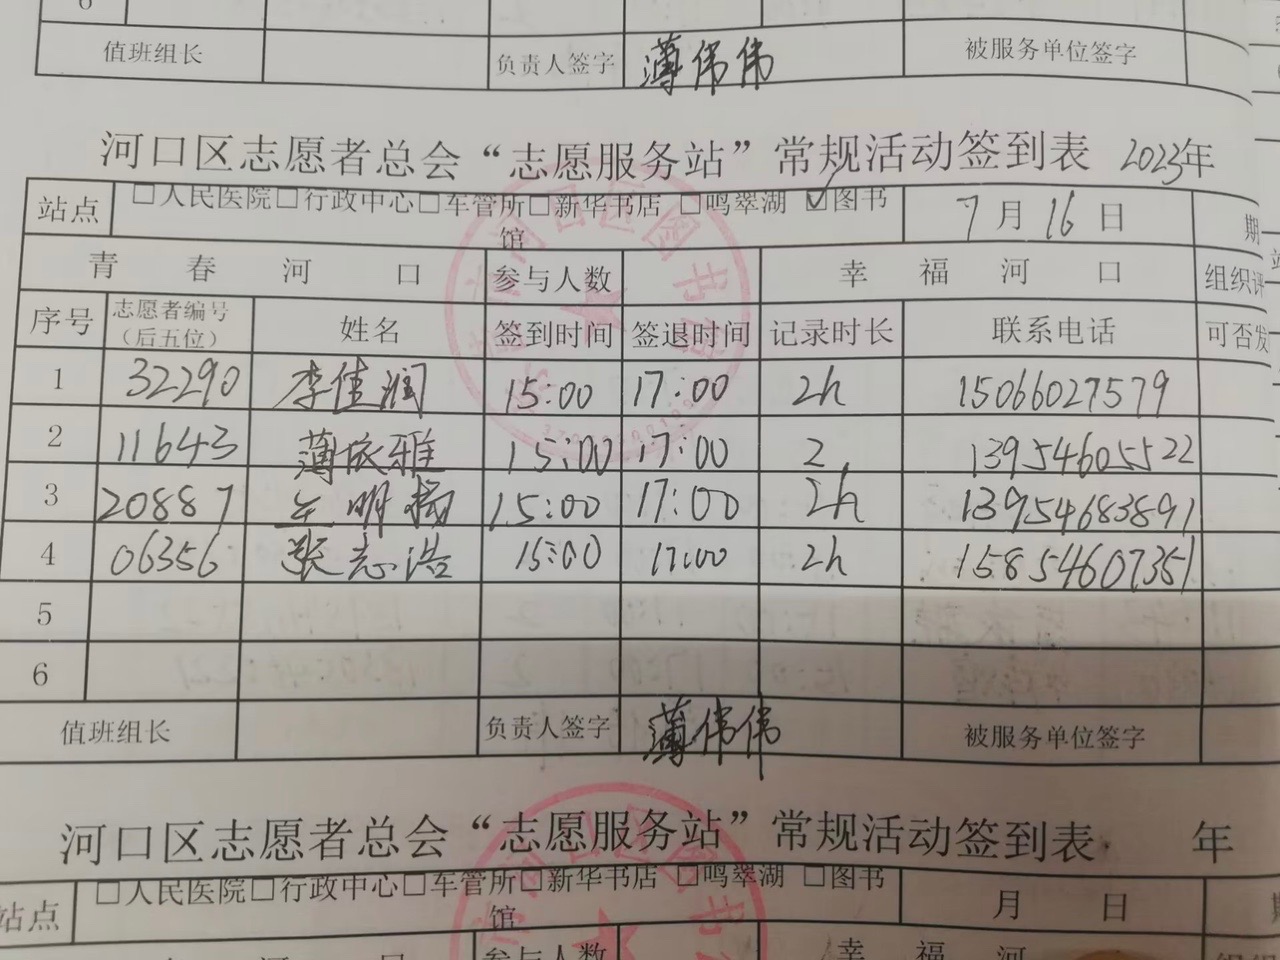 6
值班组长 负责人签字 薄伟伟 被服务单位签字
河口区志愿者总会“志愿服务站”常规活动签到表 2023年
站点 □人民医院□行政中心□车管所□新华书店 □鸣翠湖 ☑图书馆 7月16日 期
青春河口 参与人数 幸福河口 组织评
序号 志愿者编号（后五位） 姓名 签到时间 签退时间 记录时长 联系电话 可否发
1 32290 李佳润 15:00 17:00 2h 15066027579
2 11643 薄依雅 15:00 17:00 2 13954605522
3 20887 明 15:00 17:00 2h 13954683891
4 06356 张志浩 15:00 17:00 2h 15854607351
5
6
值班组长 负责人签字 薄伟伟 被服务单位签字
河口区志愿者总会“志愿服务站”常规活动签到表 年
站点 □人民医院□行政中心□车管所□新华书店 □鸣翠湖 □图书馆 月 日
参与人数 幸福河